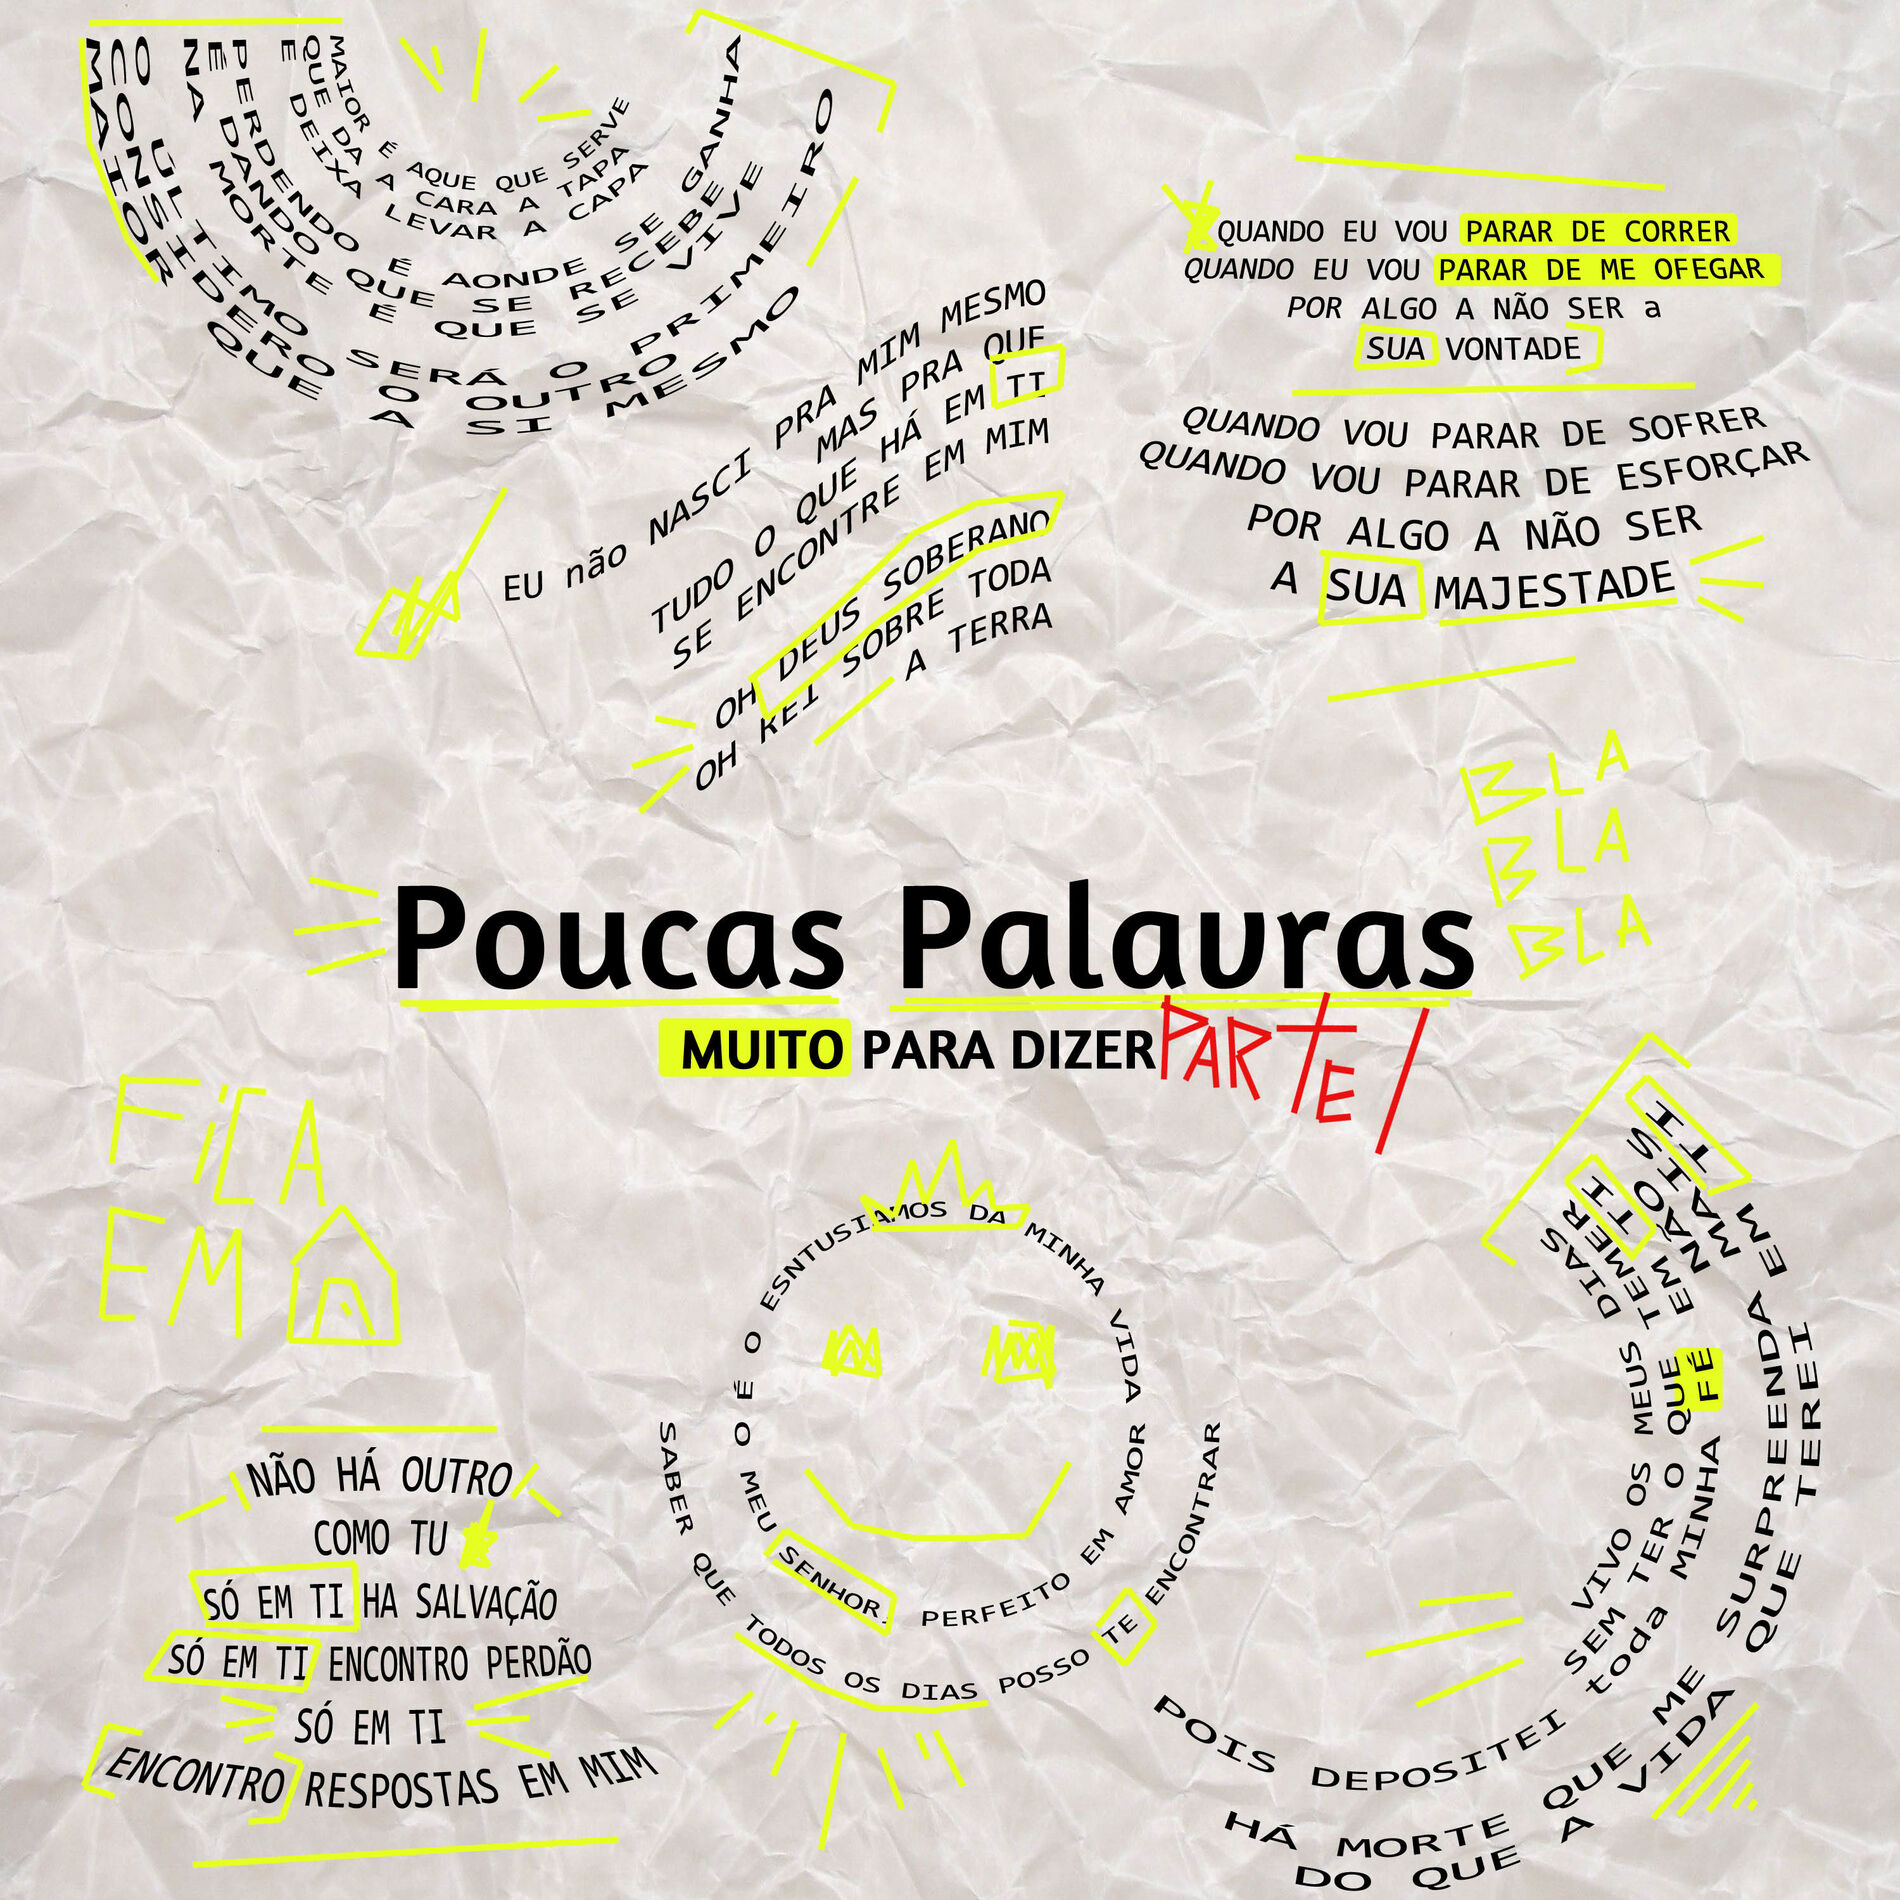 MAIOR É AQUE QUE SERVE
QUE DA A CARA A TAPA
E DEIXA LEVAR A CAPA
PERDENDO É AONDE SE GANHA
É DANDO QUE SE RECEBE
NA MORTE É QUE SE VIVE
O ÚLTIMO SERÁ O PRIMEIRO
CONSIDERO O OUTRO
MAIOR QUE A SI MESMO
EU não NASCI PRA MIM MESMO
MAS PRA QUE
TUDO O QUE HÁ EM TI
SE ENCONTRE EM MIM
OH DEUS SOBERANO
OH REI SOBRE TODA
A TERRA
QUANDO EU VOU PARAR DE CORRER
QUANDO EU VOU PARAR DE ME OFEGAR
POR ALGO A NÃO SER a
SUA VONTADE
QUANDO VOU PARAR DE SOFRER
QUANDO VOU PARAR DE ESFORÇAR
POR ALGO A NÃO SER
A SUA MAJESTADE
BLA
BLA
BLA
Poucas Palavras
MUITO PARA DIZER
PARTE 1
FiCA
EM
NÃO HÁ OUTRO
COMO TU
SÓ EM TI HA SALVAÇÃO
SÓ EM TI ENCONTRO PERDÃO
SÓ EM TI
ENCONTRO RESPOSTAS EM MIM
O É O ESNTUSIAMOS DA MINHA VIDA
O MEU SENHOR. PERFEITO EM AMOR
SABER QUE TODOS OS DIAS POSSO TE ENCONTRAR
VIVO OS MEUS DIAS
SEM TER O QUE TEMER
POIS DEPOSITEI toda MINHA FÉ EM TI
NÃO
HÁ MORTE QUE ME SURPREENDA EM MAIS
DO QUE A VIDA QUE TEREI EM TI